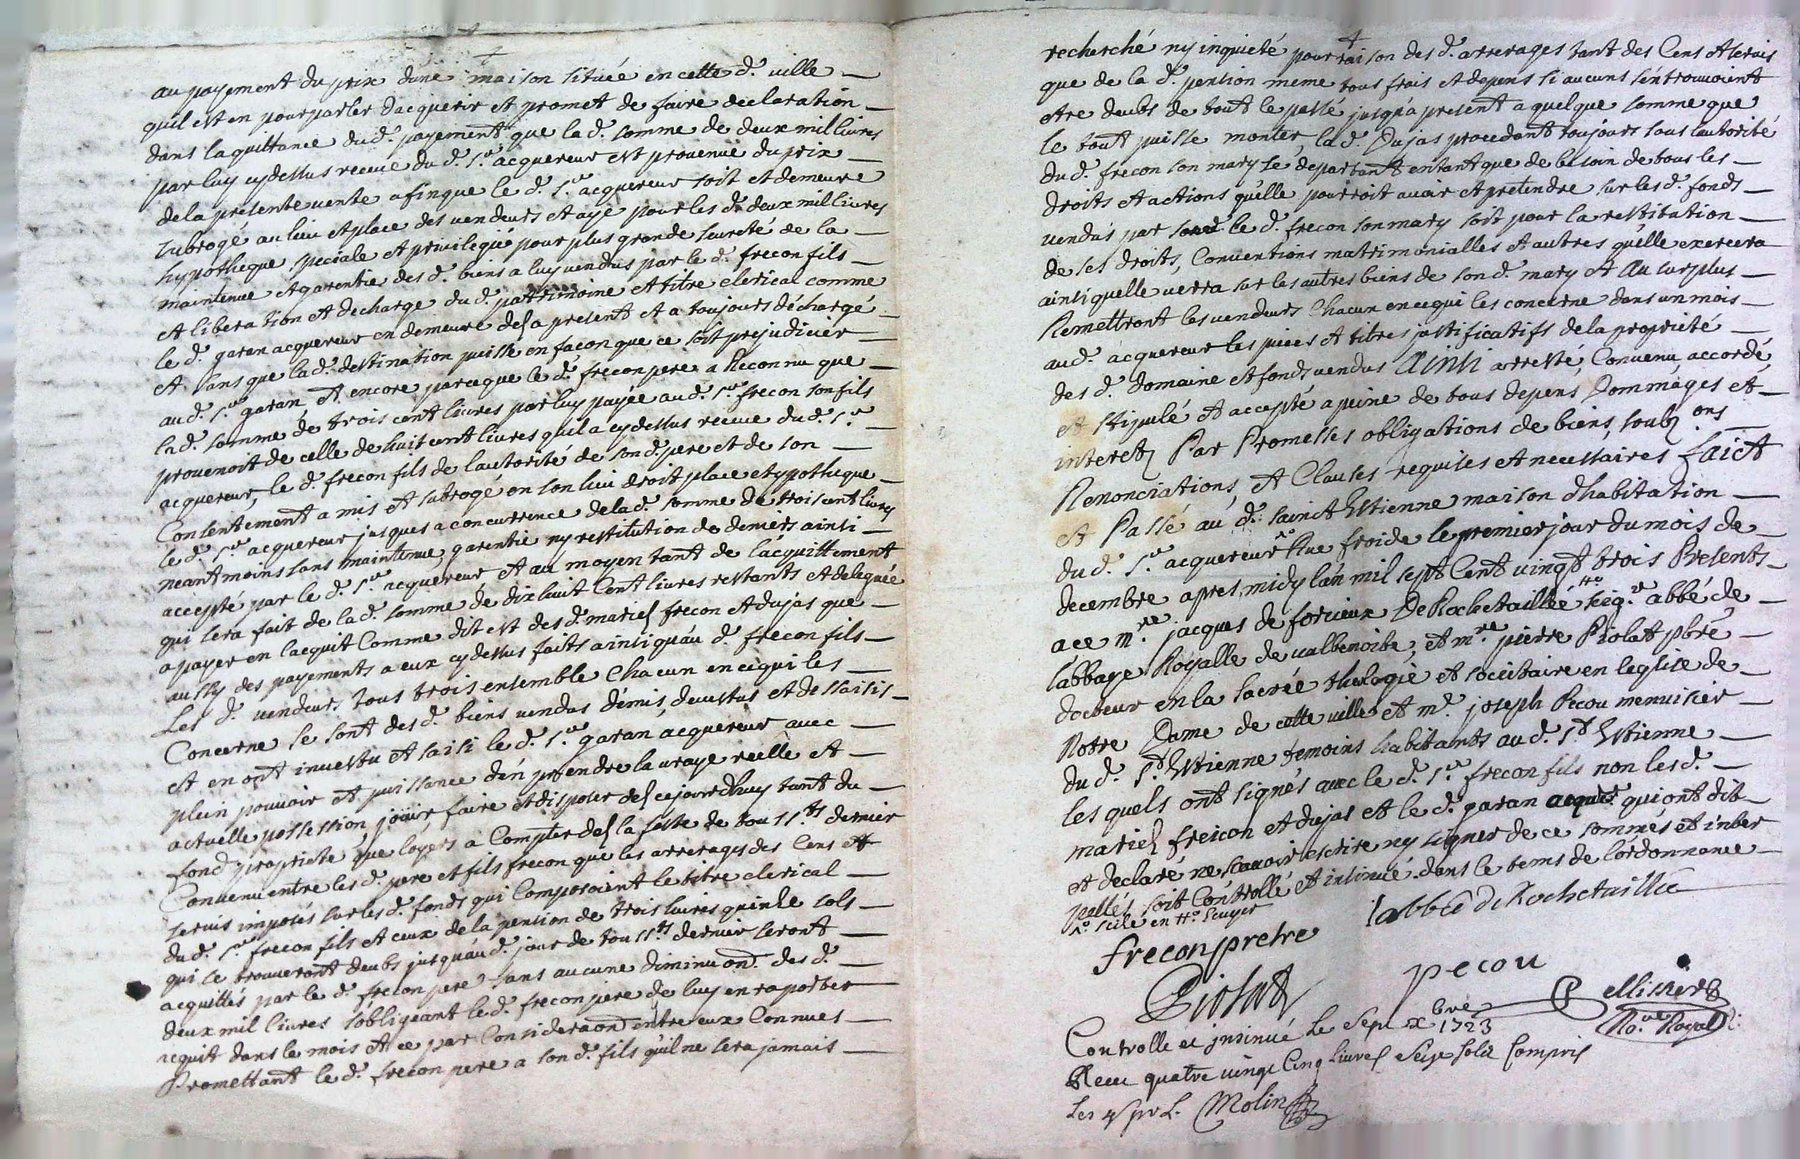 au payement du prix dune maison située en cette d. ville
quil est en pourparler dacquerir et promet de faire declaration
dans la quittance dud. payement que lad. somme de deux mil livres
par luy cydessus receue du d. s.r acquereur est provenue du prix
dela presente vente afinque le d. s.r acquereur soit et demeure
subrogé au lieu et place des vendeurs et aye pour les d. deux mil livres
hypotheque speciale et privilegié pour plus grande seureté de la
maintenue et garentie des d. biens a luy vendus par le d. frecon fils
et liberation et decharge du d. patrimoine et titre clerical comme
le d. garan acquereur en demeure des a present et a toujours déchargé
et sans que la d. destination puisse en facon que ce soit prejudicier
au d. s.r garan et encore parceque le d. frecon pere a Reconnu que
la d. somme de trois cent livres par luy payée au d. s.r frecon son fils
provenoit de celle de huit cent livres quil a cydessus receue du d. s.r
acquereur, le d. frecon fils de lautorité de son d. pere et de son
Consentement a mis et subrogé en son lieu droit place et ypotheque
le d. s.r acquereur jusques a concurrence dela d. somme de trois cent livres
neantmoins sans maintenue, garentie ny restitution de deniers ainsi
accepté par le d. s.r acquereur et au moyen tant de lacquittement
qui sera fait de la d. somme de dix huit Cent livres restants et deleguée
a payer en lacquit Comme dit est des d. mariés frecon et dujas que
aussy des payements a eux cydessus faits ainsiquáu d. frecon fils
Les d. vendeurs tous trois ensemble Chacun en cequi les
Concerne se sont des d. biens vendus démis, devestus et dessaisis
et en ont investu et saisi le d. s.r garan, acquereur avec
plein pouvoir et puissance dén prendre la vraye réelle et
actuelle possession joüir faire et disposer des cejourdhuy tant du
fond, proprieté que loyers a Compter des la feste de tous s.ts dernier
Convenu entre les d. pere et fils frecon que les arrerages des Cens et
servis imposés sur les d. fonds qui Composoient le titre clerical
du d. s.r frecon fils et ceux de la pention de trois livres quinze sols
qui se trouveront deubs jusquáu d. jour de tous s.ts dernier seront
acquittés par le d. frecon pere sans aucune diminuon. des d.
deux mil livres sobligeant le d. frecon pere de luy en raporter
acquit dans le mois et ce par Consideraon. entre eux Connues
Promettant le d. frecon pere a son d. fils quíl ne sera jamais
recherché ny inquieté pour raison des d. arrerages tant des Cens et servis
que de la d. pention meme tous frais et depens si aucuns sén trouvoient
etre deubs de tout le passé jusquà present a quelque somme que
le tout puisse monter, la d. Dujas procedant toujours sous lautorité
du d. frecon son mary se departant en tantque de besoin de tous les
droits et actions quélle pourroit avoir et pretendre sur les d. fonds
vendus par le d. frecon son mary soit pour la restitution
de ses droits, Conventions matrimonialles et autres quélle exercera
ainsi quelle verra sur les autres biens de son d. mary et Au surplus
Remettront les vendeurs Chacun en cequi les concerne dans un mois
au d. acquereur les pieces et titres justificatifs dela proprieté
des d. domaine et fonds vendus Ainsi arresté, Convenu, accordé,
et stipulé et accepté a peine de tous depens Dommages et
interets Par Promesses obligations de biens, soub.ons
Renonciations, et Clauses requises et necessaires faict
et Passé au d. sainct Estienne maison dhabitation
du d. s.r acquereur Rue froide le premier jour du mois de
decembre apres midy lán mil sept Cent vingt trois Presents
a ce m.re jacques de forieux De Rochetaillée abbé de
labbaye Royalle de valbenoite, et m.re pierre Piolat pbre
docteur en la sacrée theologie et socitaire en leglise de
Notre Dame de cette ville, et m.e joseph Pecou menuisier
du d. s.t Estienne temoins habitants au d. s.t Estienne
les quels ont signés avec le d. s.r frecon fils non les d.
mariés freicon et dujas et le d. garan acquer qui ont dit
et declaré ne scavoir escrire ny signer de ce sommés et inter
pellés soit Controllé et insinué dans le tems de lórdonnance
labbé de Rochetaillée
frecon pretre
Piolat
pecou
Pellissier
No.re Royal
Controllé et insinué Le Sept xbre 1723
Receu quatre vingt Cinq Livres Seize solz Compris
Les 4 s pr L. Molin